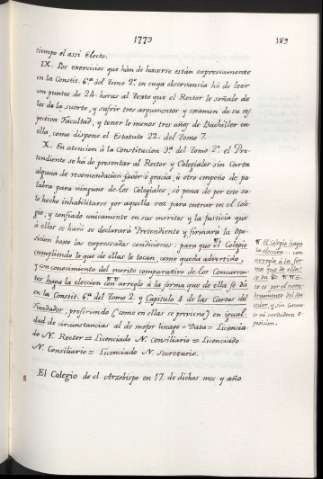 1773
189
tiempo el assi Electo.
IX. Los exercicios que hàn de hacerse estàn expressamente
en la Constit. 6ª del Tomo 2º en cuya observancia hà de leer
con puntos de 24 horas al Texto que el Rector le señale de
los de la suerte, y sufrir tres argumentos y examen de su res
pectiva Facultad, y tener lo menos tres años de Bachiller en
ella, como dispone el Estatuto 22. del Tomo 7.
X. En atencion à la Constitucion 3ª del Tomo 2º el Pre-
tendiente se hà de presentar al Rector y Colegiales sin Carta
alguna de recomendacion favor ò gracia, ù otro empeño de pa
labra para ninguno de los Colegiales, sò pena de por este so-
lo hecho inhabilitarse por aquella vez para entrar en el Cole-
gio, y confiado unicamente en sus meritos y la justicia que
à ellos se harà se declararà Pretendiente y firmarà la Opo-
sicion baxo las expressadas condiciones: para que el Colegio
cumpliendo lo que de ellas le tocan, como queda advertido,
y con conocimiento del merito comparativo de los Concurren-
tes haga la eleccion con arreglo à la forma que de ella se dà
en la Constit. 6ª del Tomo 2. y Capitulo 4 de las Cartas del
Fundador, prefiriendo (como en ellas se previene) en igual-
dad de circunstancias al de mejor linage = Data = Licencia-
do N. Rector = Licenciado N. Conciliario = Licenciado
N. Conciliario = Licenciado N. Secretario.
El Colegio haga
la eleccion con
arreglo à la for
ma que de ella
se dà
El Colegio de el Arzobispo en 17 de dichos mes y año
8